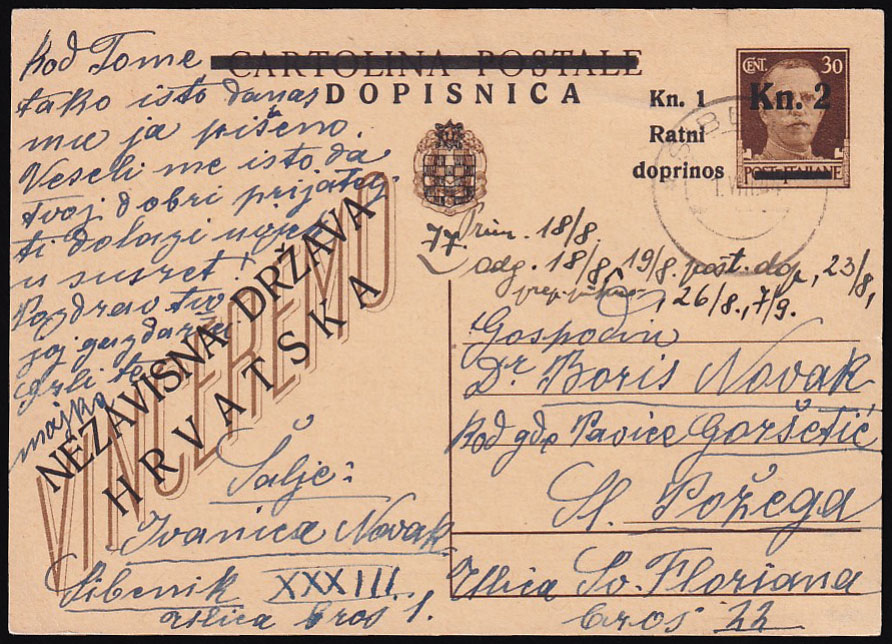 CARTOLINA POSTALE
DOPISNICA
Kn. 1
Ratni
doprinos
CENT. 30
Kn. 2
POSTE ITALIANE
Kod Tome
tako isto danas
mu ja pišemo.
Veseli me isto da
tvoj dobri prijatelj
ti dolazi
u susret!
Pozdrav tvo
joj gazdarici
Grli te
majka
VINCEREMO
NEZAVISNA DRŽAVA
HRVATSKA
Prim. 18/8.
odg. 18/8, 19/8. pošt. dop, 23/8,
26/8., 7/9.
Gospodin
Dr. Boris Novak
Kod gđe Pavice Goršetić
Sl. Požega
Ulica Sv. Floriana
broj 22
Šalje:
Ivanica Novak
Šibenik XXXIII.
Ulica broj 1.